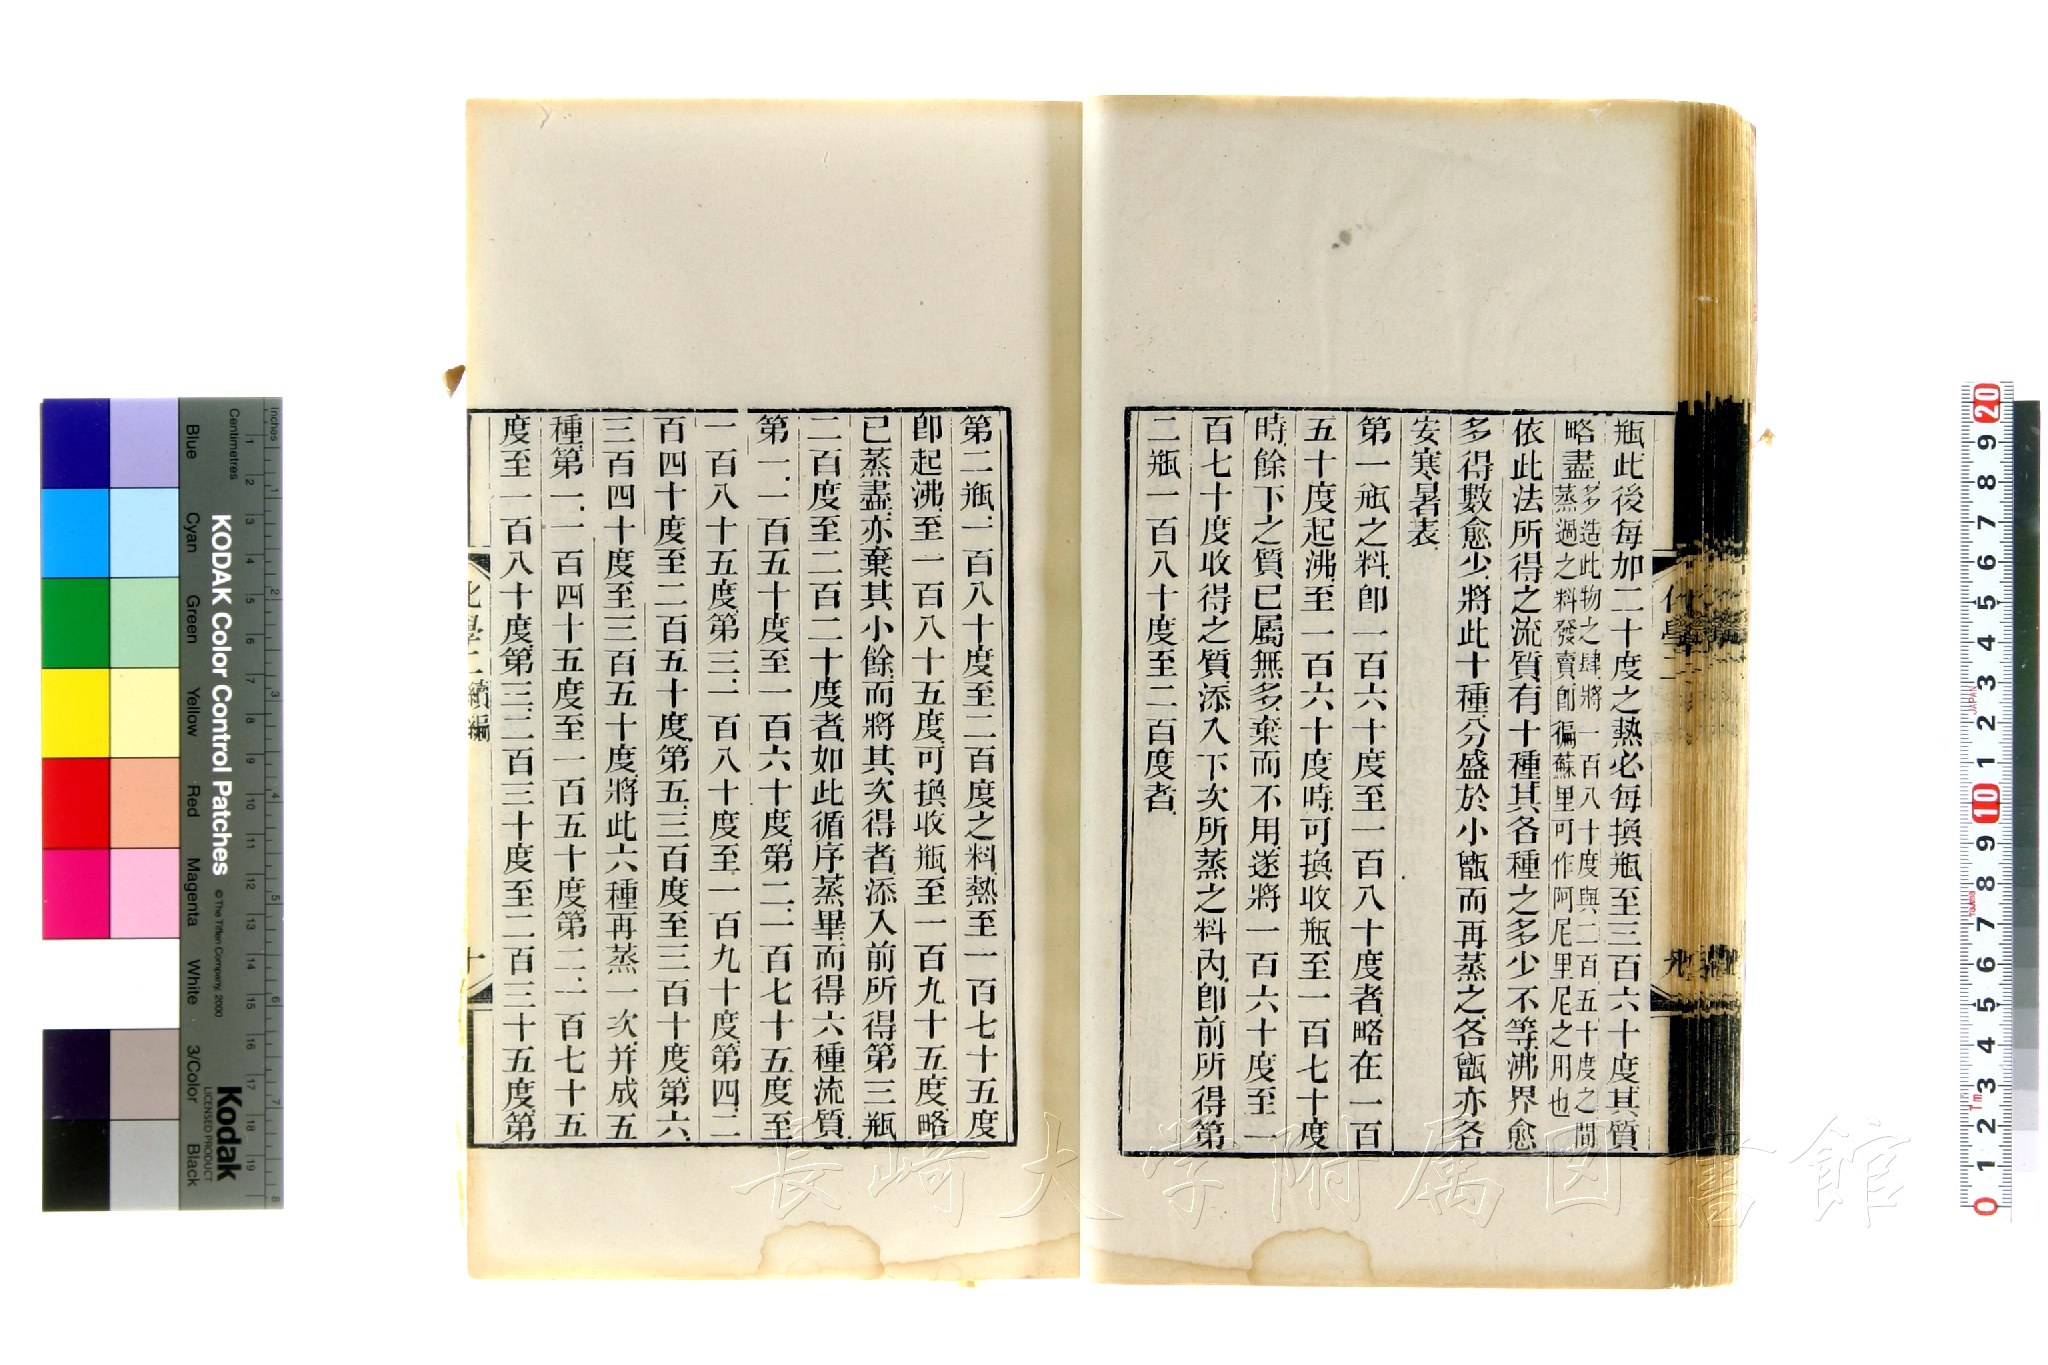 瓶此後每加二十度之熱必每換瓶至三百六十度其質
略盡多造此物之肆將一百八十度與二百五十度之間
蒸過之料發賣卽徧蘇里可作阿尼里尼之用也
依此法所得之流質有十種其各種之多少不等沸界愈
多得數愈少將此十種分盛於小甑而再蒸之各甑亦各
安寒暑表
第一瓶之料卽一百六十度至一百八十度者略在一百
五十度起沸至一百六十度時可換收瓶至一百七十度
時餘下之質已屬無多棄而不用遂將一百六十度至一
百七十度收得之質添入下次所蒸之料內卽前所得第
二瓶一百八十度至二百度者
化學二
九
第二瓶一百八十度至二百度之料熱至一百七十五度
卽起沸至一百八十五度可換收瓶至一百九十五度略
已蒸盡亦棄其小餘而將其次得者添入前所得第三瓶
二百度至二百二十度者如此循序蒸畢而得六種流質
第一一百五十度至一百六十度第二一百七十五度至
一百八十五度第三一百八十度至一百九十度第四二
百四十度至二百五十度第五三百度至三百十度第六
三百四十度至三百五十度將此六種再蒸一次并成五
種第一一百四十五度至一百五十度第二一百七十五
度至一百八十度第三二百三十度至二百三十五度第
化學二續編
十
長崎大学附属図書館
KODAK Color Control Patches
© The Tiffen Company, 2000
Kodak
LICENSED PRODUCT
Inches
Centimetres
Blue
Cyan
Green
Yellow
Red
Magenta
White
3/Color
Black